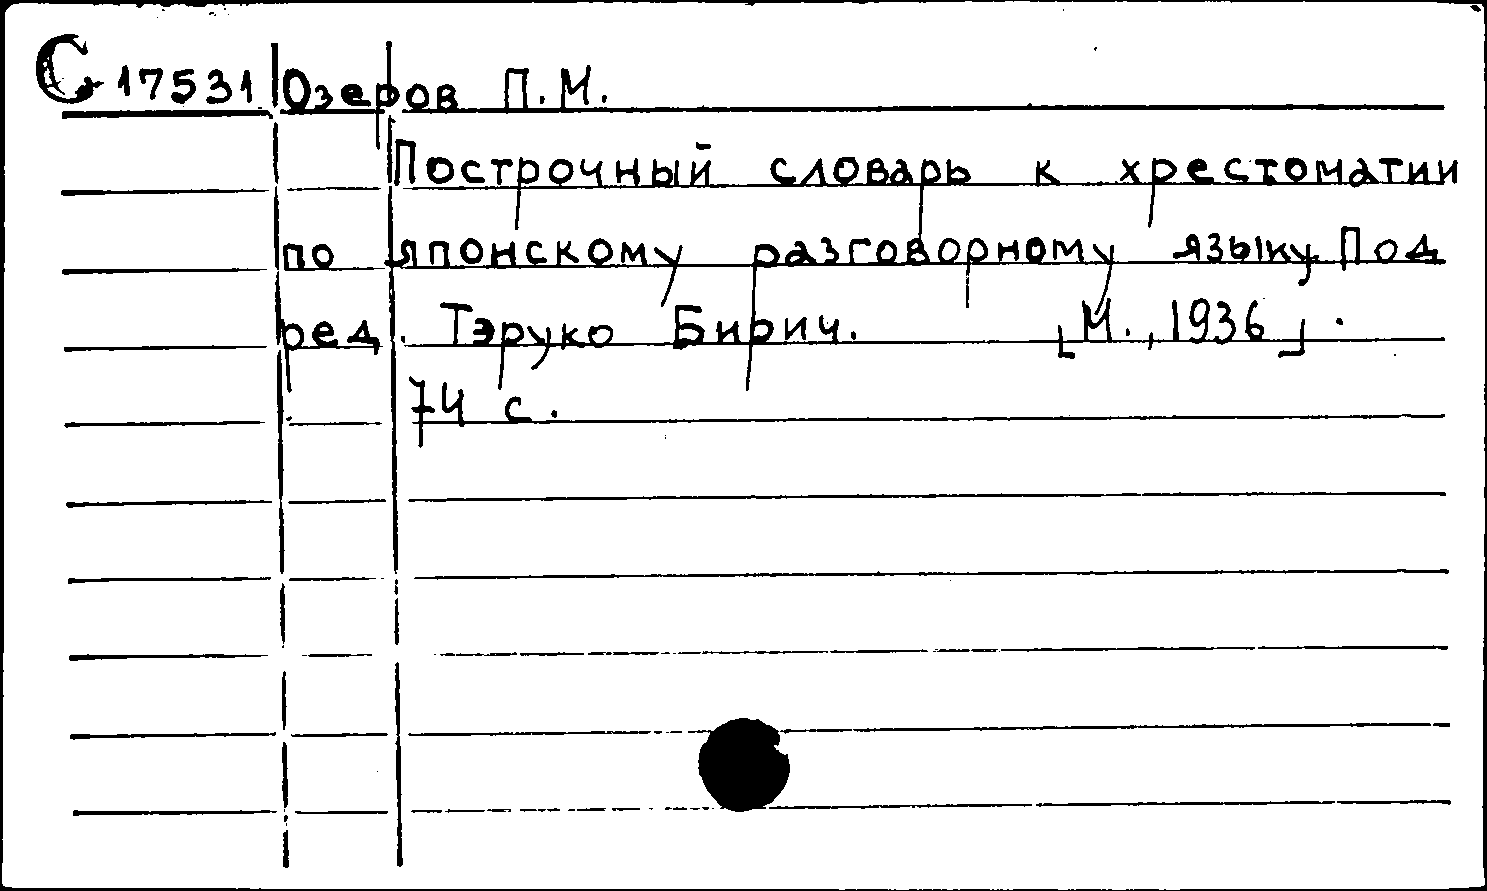 С 17531 Озеров П.М.
Построчный словарь к хрестоматии
по японскому разговорному языку. Под
ред. Тэруко Бирич. [М., 1936].
74 с.